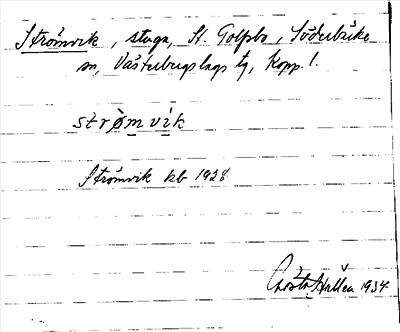 Strömvik, stuga, St. Golpbo, Söderbärke
sn, Västerbergslags tg, Kopp. l.
strömvik
Strömvik kb 1928
Gösta Hallén 1934